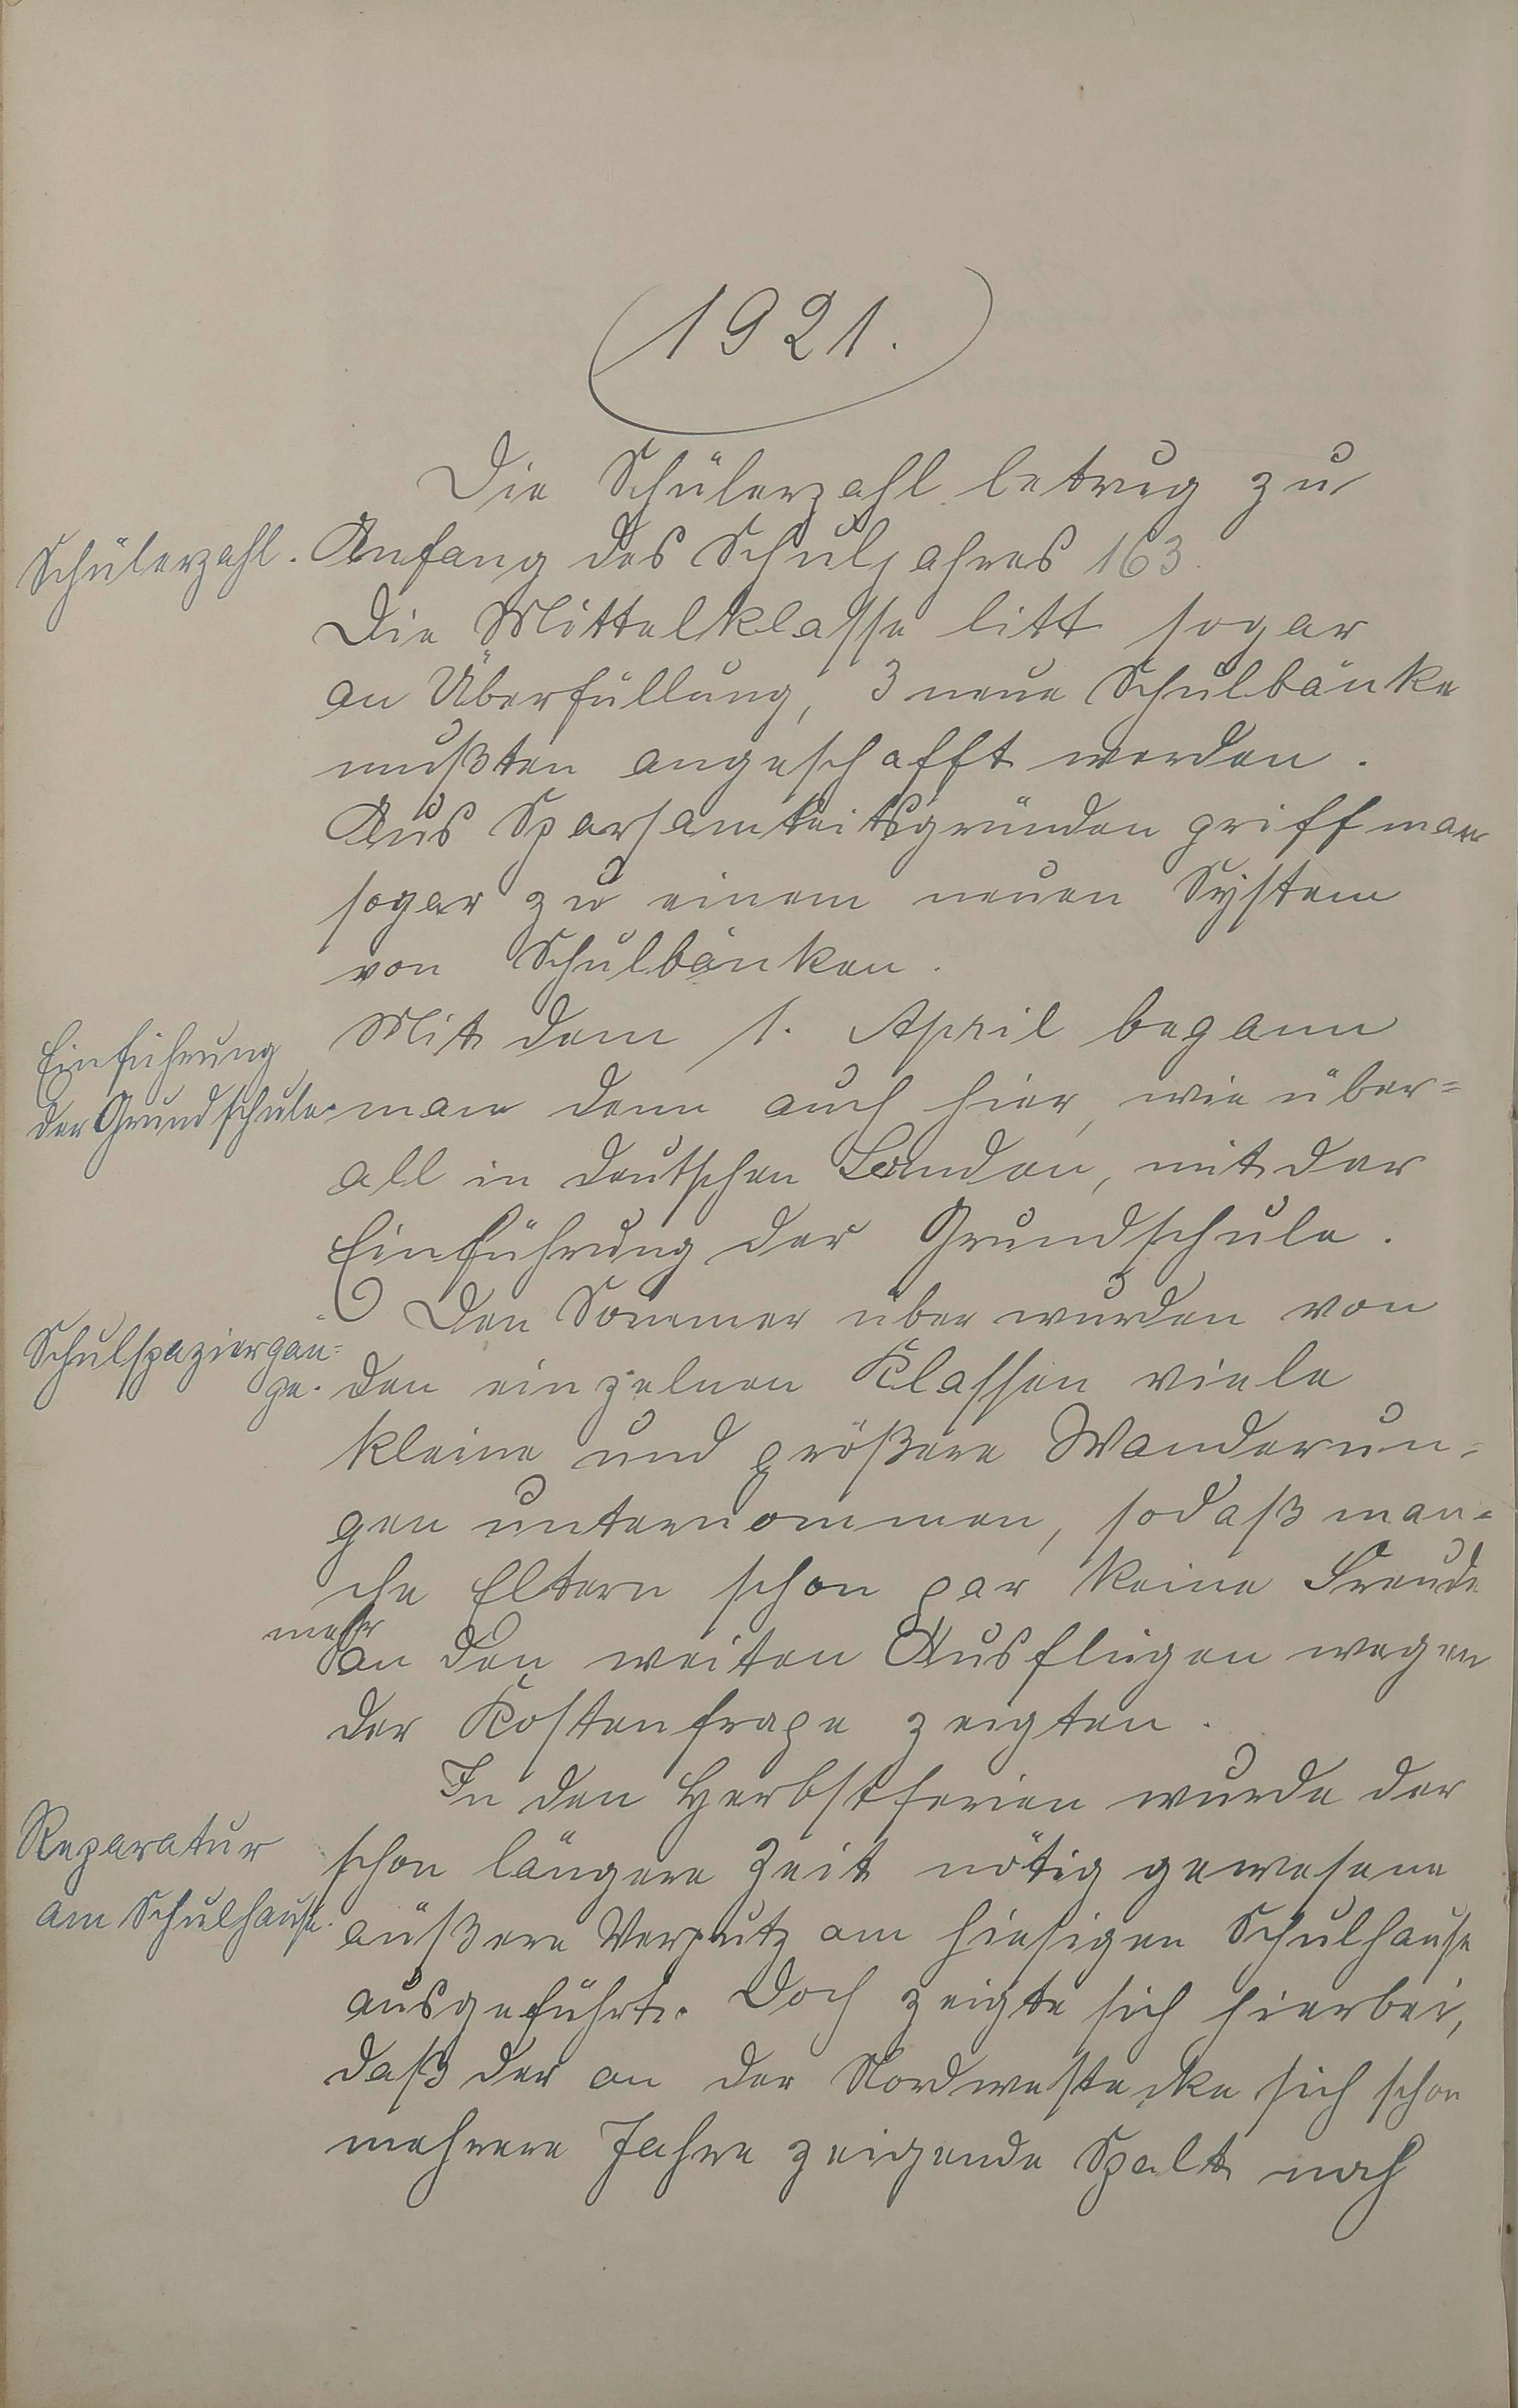 1921.
Die Schülerzahl betrug zu
Schülerzahl. Anfang des Schuljahres 163.
Die Mittelklasse litt sogar
an Überfüllung, 3 neue Schulbänke
mußten angeschafft werden.
Aus Sparsamkeitsgründen griff man
sogar zu einem neuen System
von Schulbänken.
Einführung Mit dem 1. April begann
der Grundschule. man denn auch hier, wie über=
all in deutschen Landen, mit der
Einführung der Grundschule.
Den Sommer über wurden von
Schulspaziergän=
ge. den einzelnen Klassen viele
kleine und größere Wanderun=
gen unternommen, sodaß man=
che Eltern schon gar keine Freude
mehr
an den weiten Ausflügen wegen
der Kostenfrage zeigten.
In den Herbstferien wurde der
Reparatur schon längere Zeit nötig gewesene
am Schulhause. äußere Verputz am hiesigen Schulhause
ausgeführt. Doch zeigte sich hierbei,
daß der an der Nordwestecke sich schon
mehrere Jahre zeigende Spalt noch